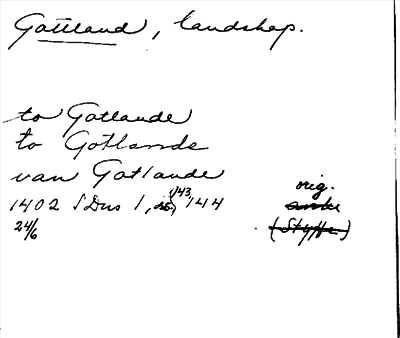 Gottland, landskap.
to Gotlande
to Gotlande
van Gotlande
orig.
1402 SDns 1, 143, 144
24/6
(Styffe)